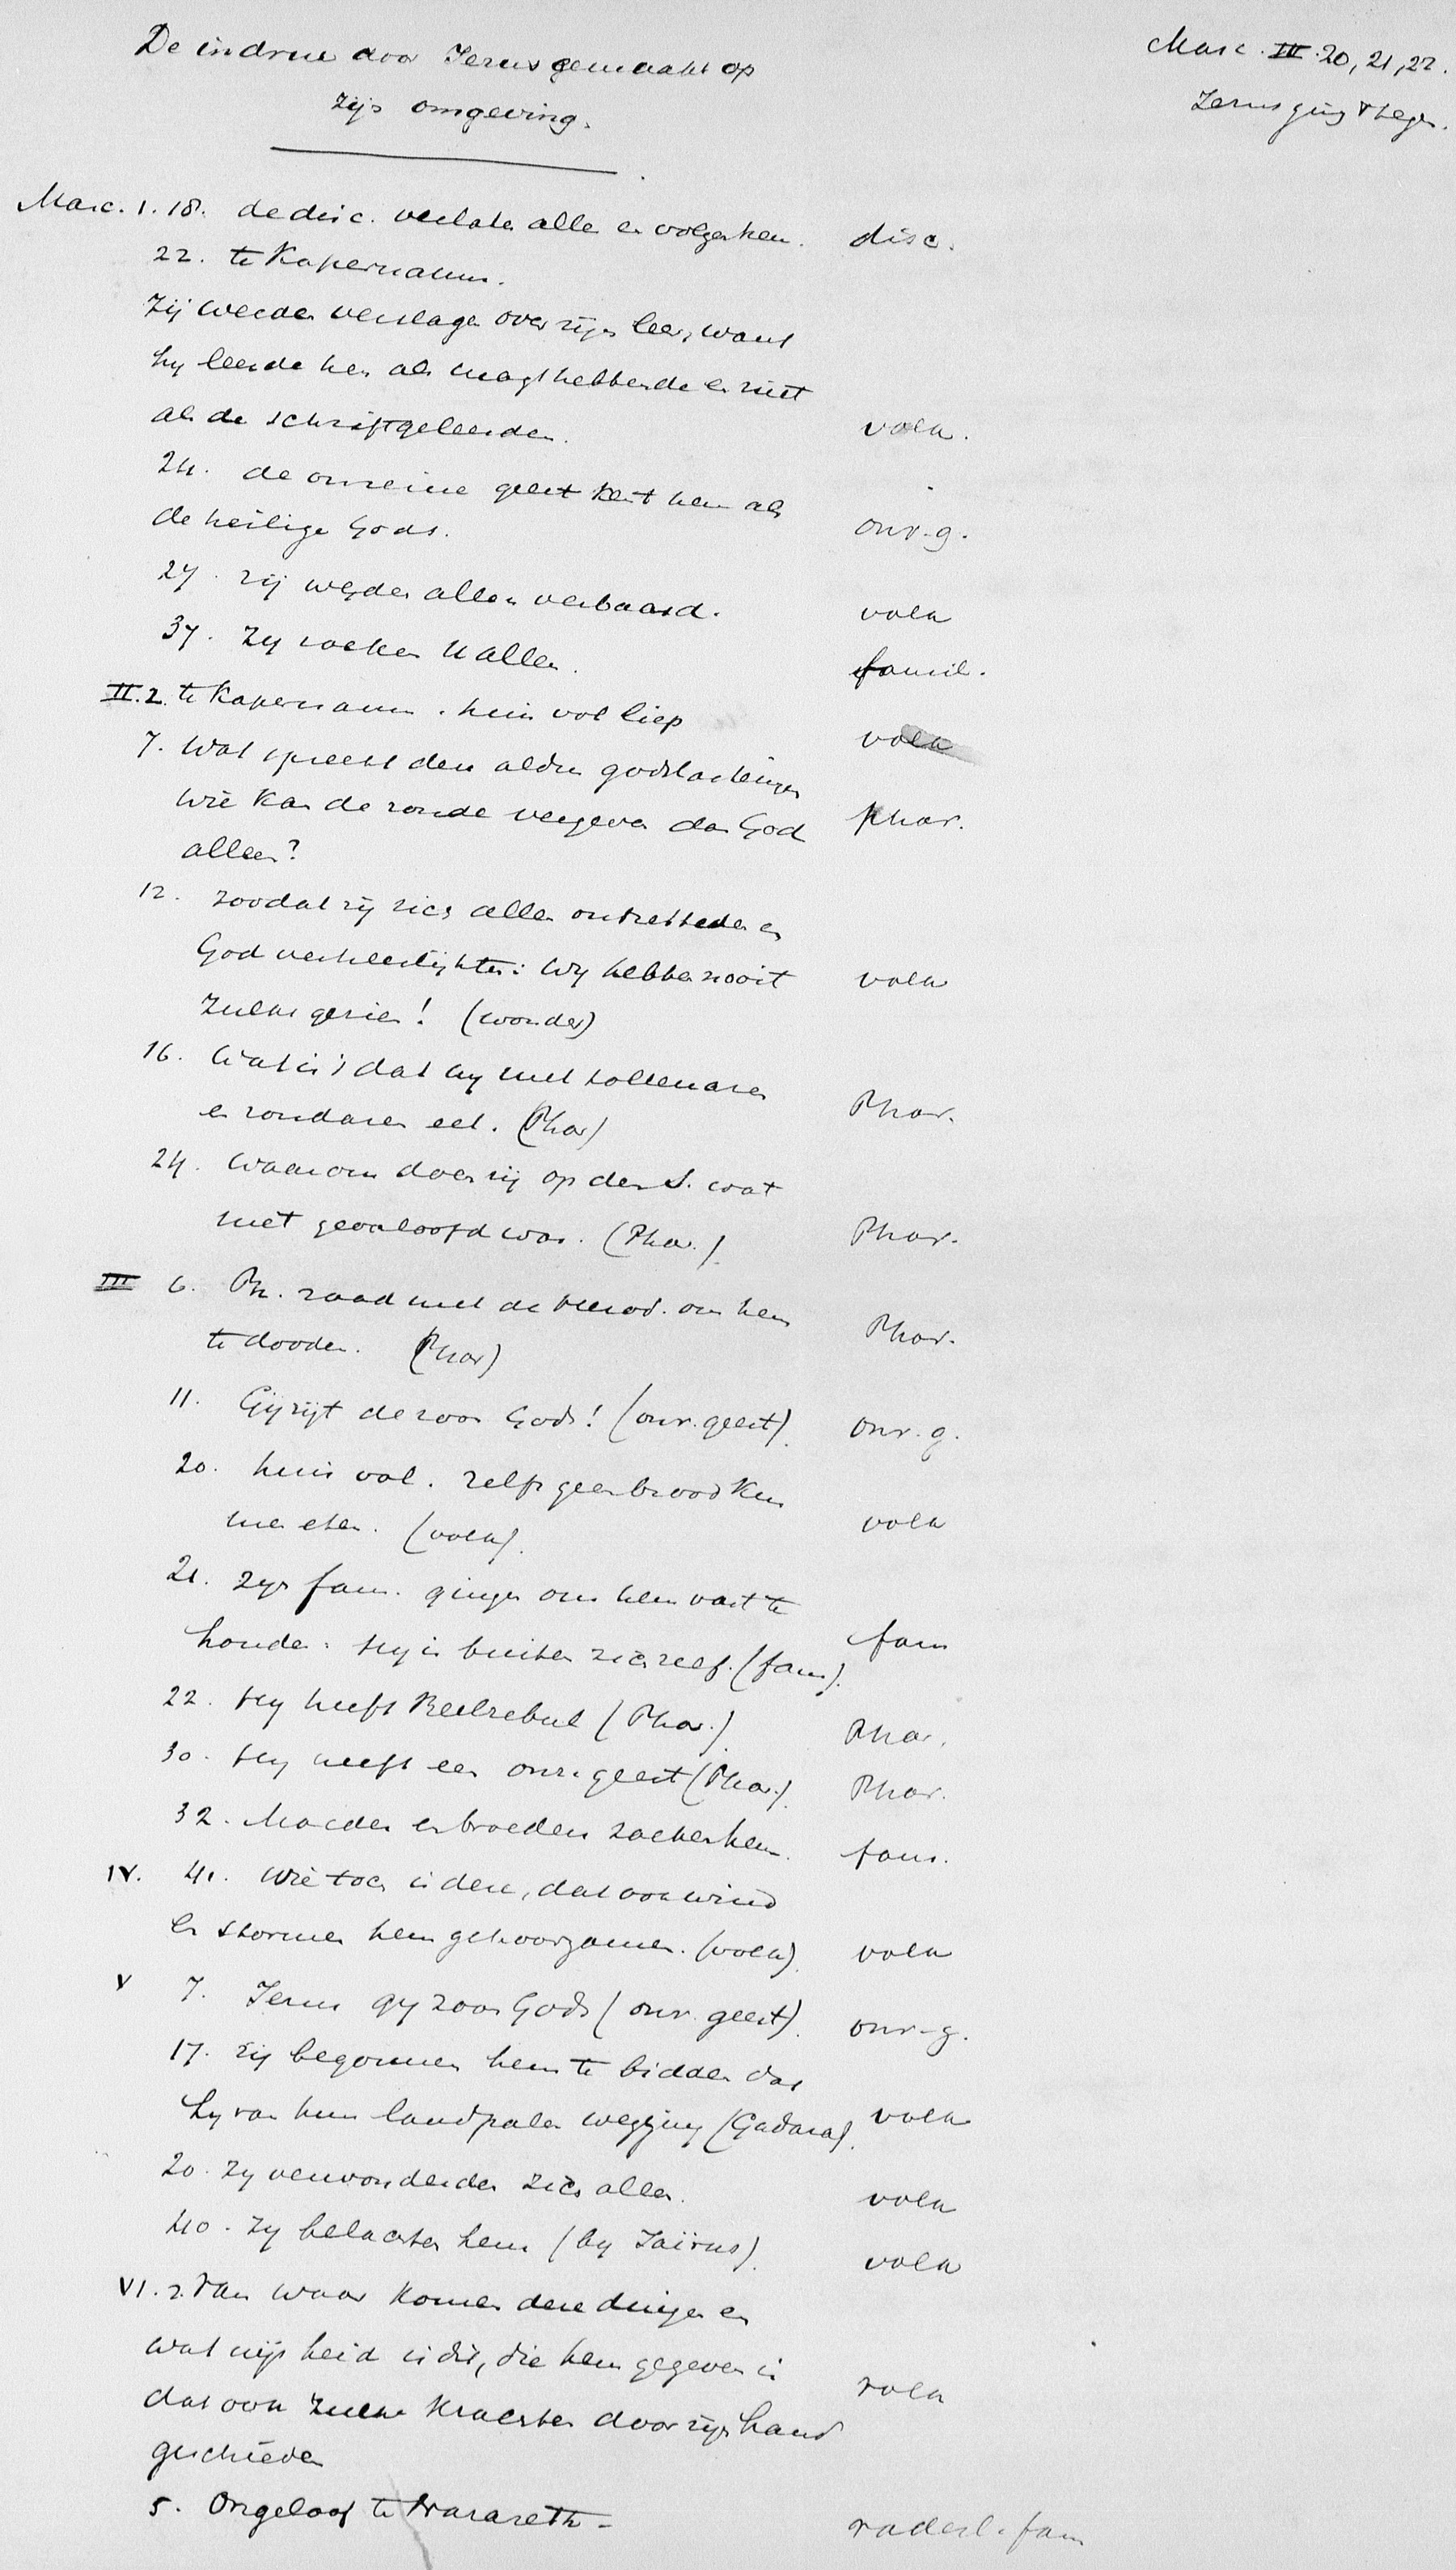 De indruk door Jezus gemaakt op
zijn omgeving.
Marc. III. 20, 21, 22.
Jezus ging
Marc. 1. 18. de disc. verlaten alles en volgen hem. disc.
22. te Kapernaum.
Zij werden verslagen over zijn leer, want
hij leerde hen als magthebbende en niet
als de schriftgeleerden. volk.
24. de onreine geest kent hem als
de heilige Gods. onr. g.
27. zij werden allen verbaasd. volk
37. Zij zoeken U allen. famil.
II. 2. te Kapernaum. huis vol liep volk
7. Wat spreekt deze aldus godslasteringen
wie kan de zonde vergeven dan God Phar.
alleen?
12. zoodat zij zich allen ontzetteden en
God verheerlijkten: wij hebben nooit volk
zulks gezien! (wonder)
16. Wat is 't dat hij met tollenaren
en zondaren eet. (Phar) Phar.
24. waarom doen zij op den S. wat
niet geoorloofd was. (Phar.) Phar.
III 6. Ph. raad met de Herod. om hem
te dooden. (Phar) Phar.
11. Gij zijt de zoon Gods! (onr. geest). onr. g.
20. huis vol. zelfs geen brood kun
nen eten. (volk). volk
21. zijn fam. gingen om hem vast te
houden: hij is buiten zich zelf. (fam). fam
22. Hij heeft Beelzebul (Phar.) Phar.
30. Hij heeft een onr. geest (Phar.). Phar.
32. Moeder en broeders zoeken hem. fam.
IV. 41. Wie toch is deze, dat ook wind
en stormen hem gehoorzamen. (volk). volk
V 7. Jezus gij zoon Gods (onr. geest). onr. g.
17. zij begonnen hem te bidden dat
hij van hun landpalen wegging (Gadara). volk
20. Zij verwonderden zich allen. volk
40. Zij belachten hem (bij Jaïrus). volk
VI. 2. Van waar komen deze dingen en
wat wijsheid is dit, die hem gegeven is
dat ook zulke krachten door zijn hand volk
geschieden
5. Ongeloof te Nazareth - vaderl. fam